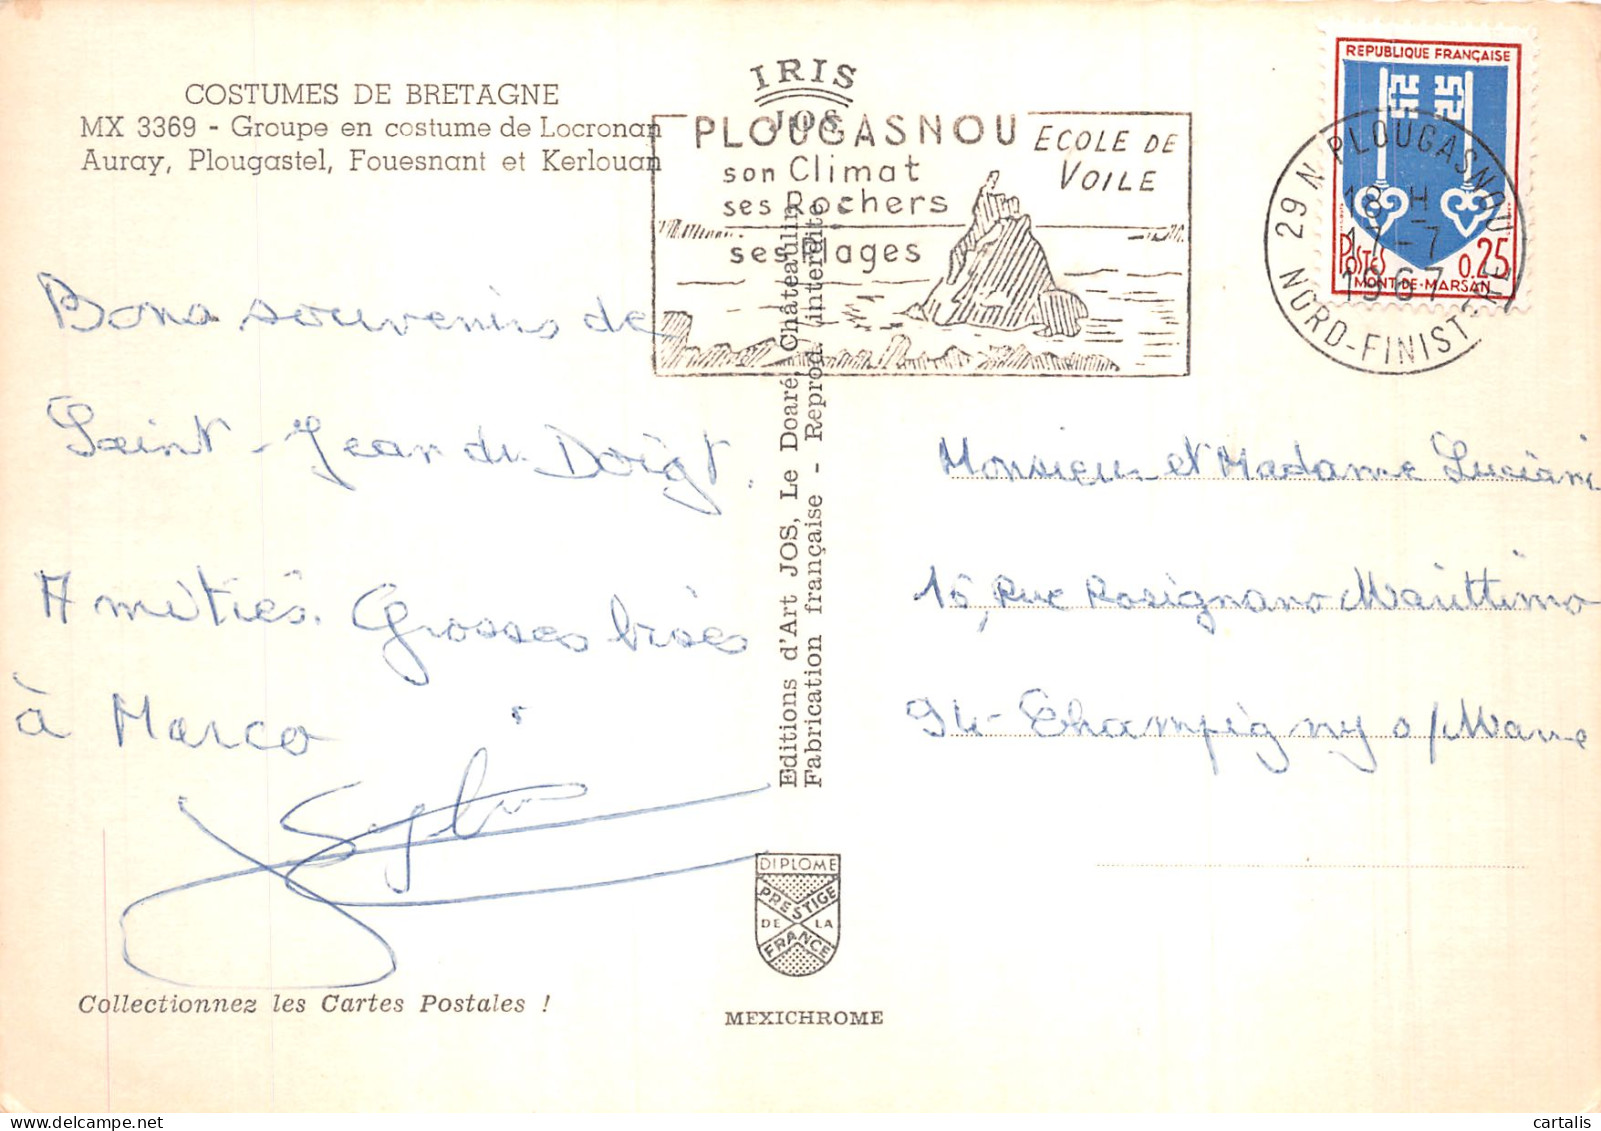 COSTUMES DE BRETAGNE
MX 3369 - Groupe en costume de Locronan
Auray, Plougastel, Fouesnant et Kerlouan
IRIS
JOS
PLOUGASNOU
son Climat
ses Rochers
ses Plages
ECOLE DE
VOILE
REPUBLIQUE FRANÇAISE
POSTES
0.25
MONT-DE-MARSAN
29 N PLOUGASNOU
18 H
17-7
1967
NORD-FINISTERE
Bons souvenirs de
Saint-Jean du Doigt.
Amitiés. Grosses bises
à Marco
Sylvie
Editions d'Art JOS, Le Doaré, Châteaulin
Fabrication française - Reprod. interdite
Monsieur et Madame Luciani
15, Rue Rosignano Marittimo
94-Champigny s/Marne
DIPLOME
PRESTIGE
DE LA
FRANCE
Collectionnez les Cartes Postales !
MEXICHROME
cartalis